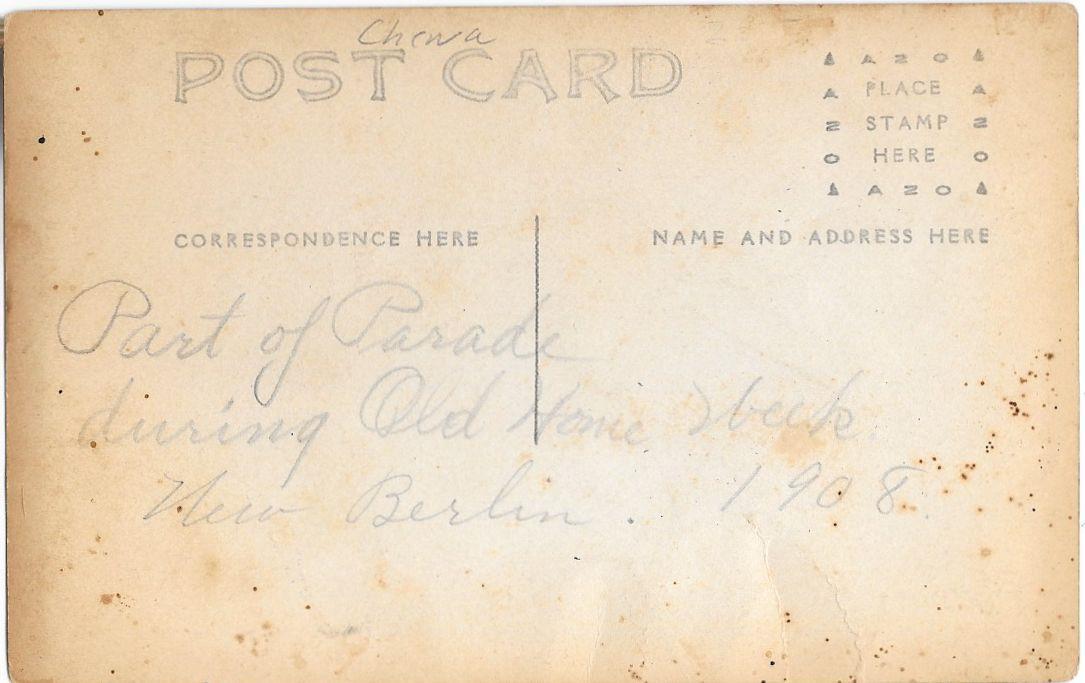 Chena
POST CARD
▲ A Z O ▲
A PLACE A
Z STAMP Z
O HERE O
▲ A Z O ▲
CORRESPONDENCE HERE
NAME AND ADDRESS HERE
Part of Parade
during Old Home Week.
New Berlin. 1908.